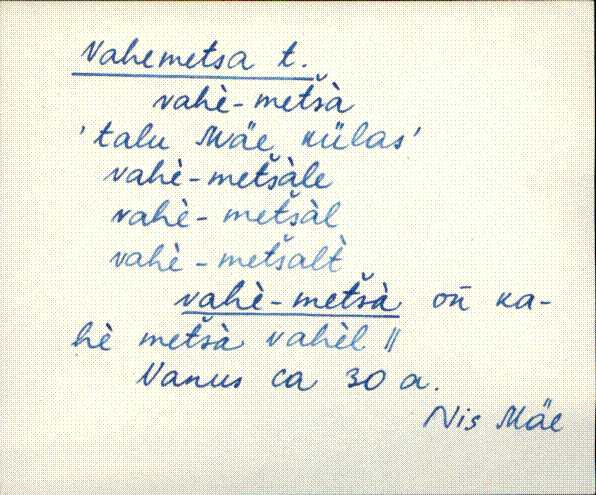 Vahemetsa t.
vahè-metšà
'talu Mäe külas'
vahè-metšàle
vahè-metšàl
vahè-metšalt̀
vahè-metšà on̄ ka-
hè metšà vahèl ||
Vanus ca 30 a.
Nis Mäe